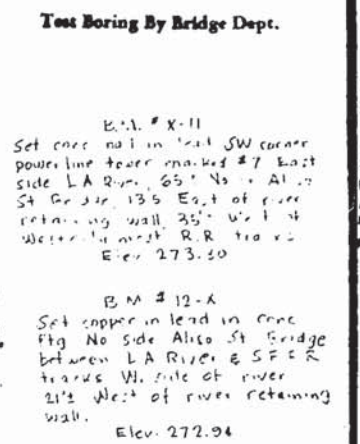 Test Boring By Bridge Dept.
B.M. # X-11
Set conc nail in lead SW corner
power line tower marked #7 East
side L A River 65' No. Aliso
St Bridge, 135 East of river
retaining wall 35' West of
most R.R. tracks
Elev 273.30
B M # 12-X
Set copper in lead in conc
ftg No side Aliso St Bridge
between L A River &
tracks W. side of river
21'± West of river retaining
wall.
Elev. 272.94